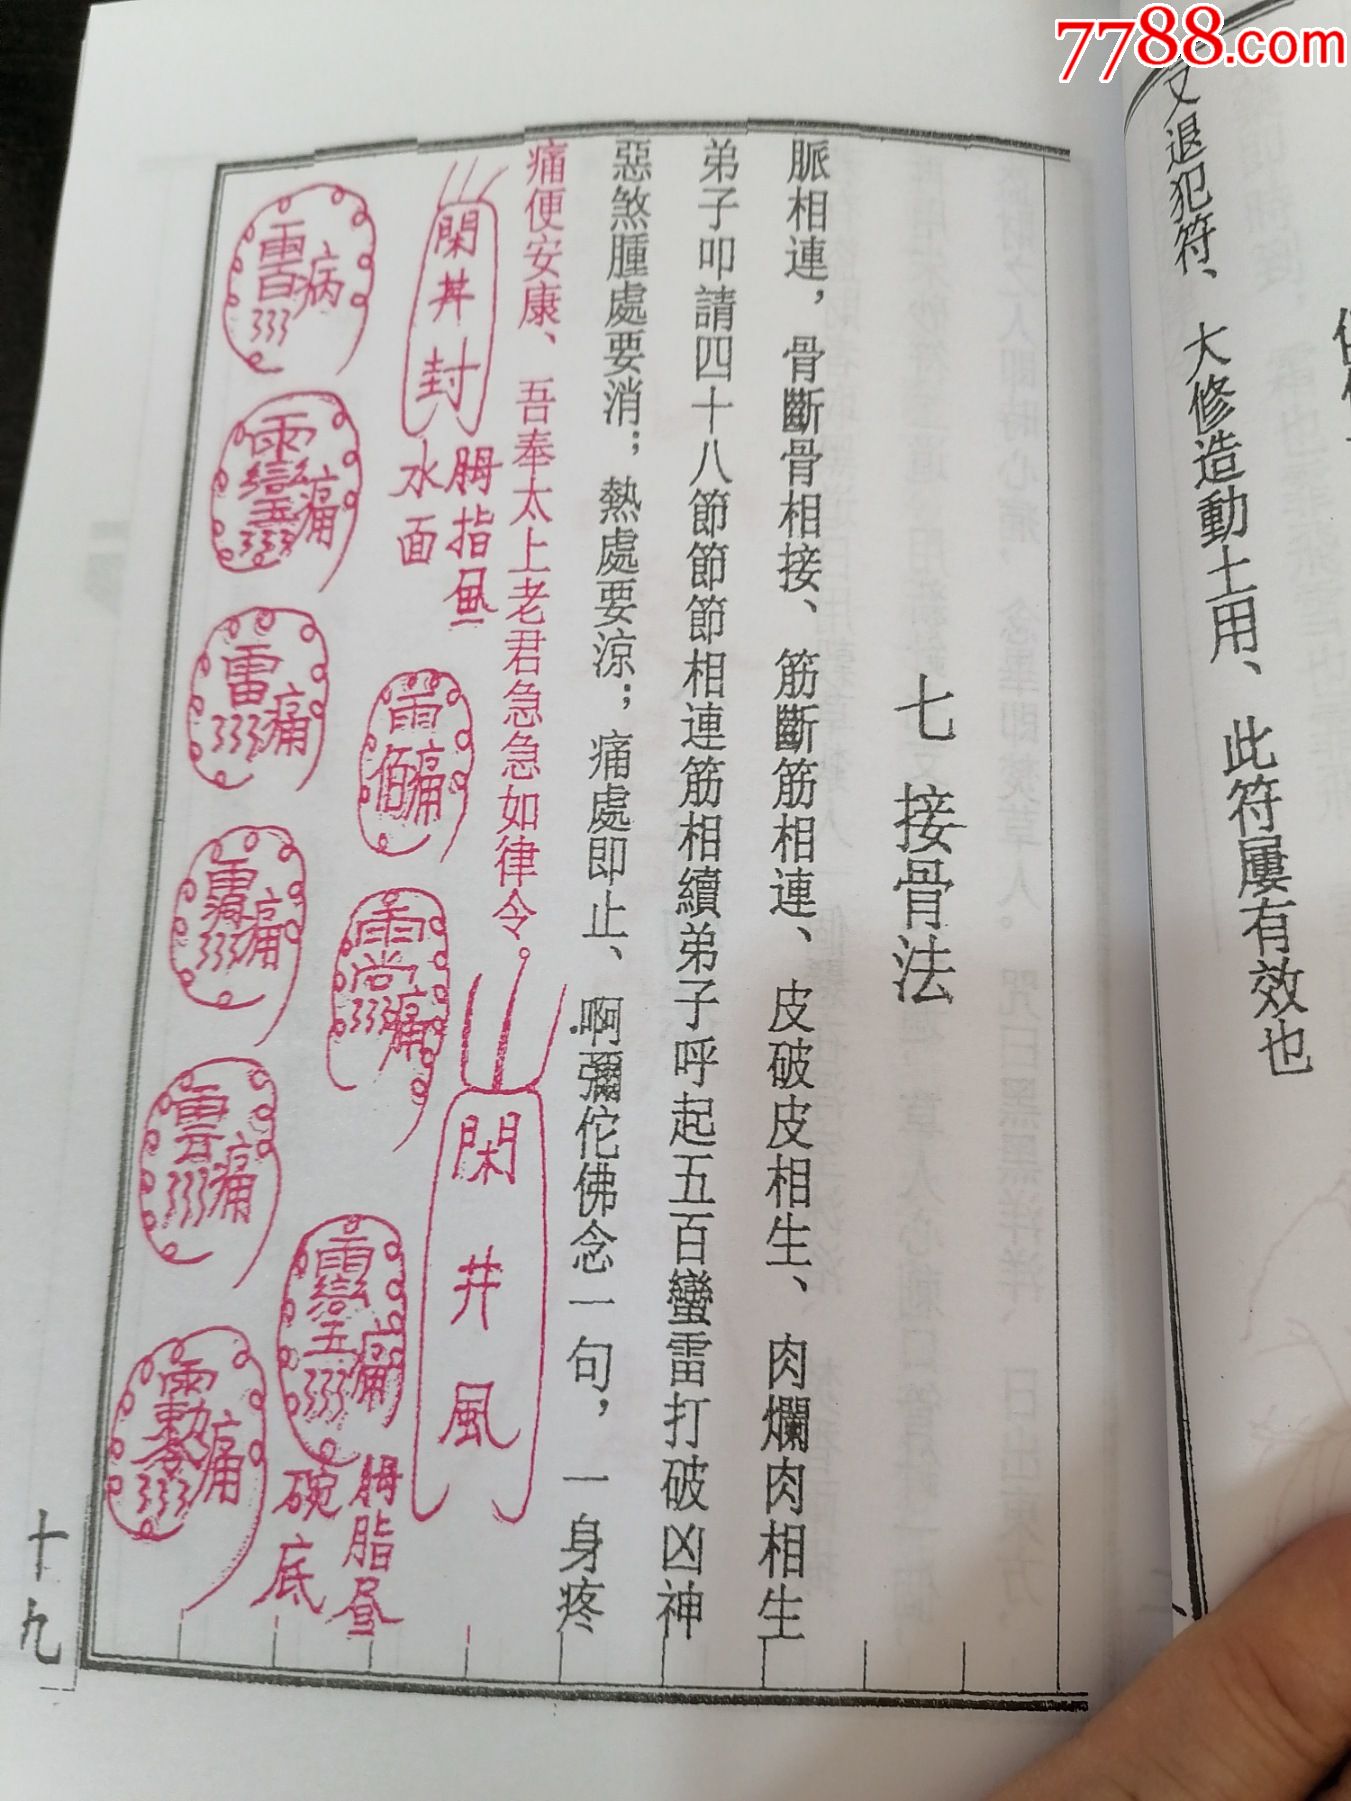 7788.com
又退犯符、大修造動土用、此符屢有效也
七 接骨法
脈相連，骨斷骨相接、筋斷筋相連、皮破皮相生、肉爛肉相生
弟子叩請四十八節節節相連筋相續弟子呼起五百蠻雷打破凶神
惡煞腫處要消；熱處要涼；痛處即止、啊彌佗佛念一句，一身疼
痛便安康、吾奉太上老君急急如律令。
閑井封
拇指
水面
閑井風
碗底
病
痛
痛
痛
痛
痛
痛
痛
痛
十九